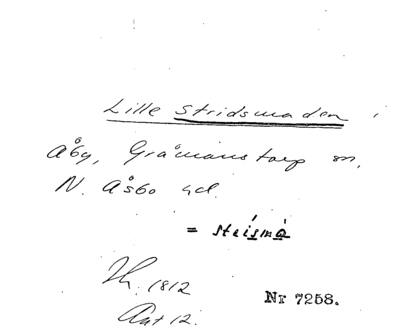 Lille Stridsmaden
Åby, Gråmanstorp sn.
N. Åsbo hd.
= steísmà
Th. 1812
Akt 12.
Nr 7258.